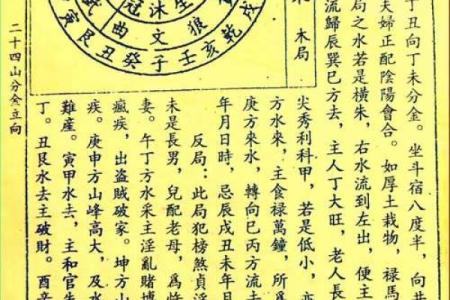 丁丑向丁未分金。坐斗宿八度半，向井
夫婦正配陰陽會合。如厚土栽物，祿馬
局之水若是橫朱，右水流到左出，便主
流歸辰巽巳方去，主人丁大旺，老人長
木局
尖秀利科甲，若是低小，
方水來，主食祿萬鐘，所
庚方來水，轉向巳丙方流去
年月日時，忌辰戌丑未年
反局：此局犯榜煞貞淫
未是長男，兒配老母，爲
妻。午丁方水采主淫亂賭博
瘋疾，出盜賊破家。坤方山
疾。庚申方山峰高大，及水
難產。寅甲水去，主和官失
丁。丑艮水去主破財。酉辛
冠沐生
武曲文狼
寅艮丑癸子壬亥乾戌
二十四山分金立向